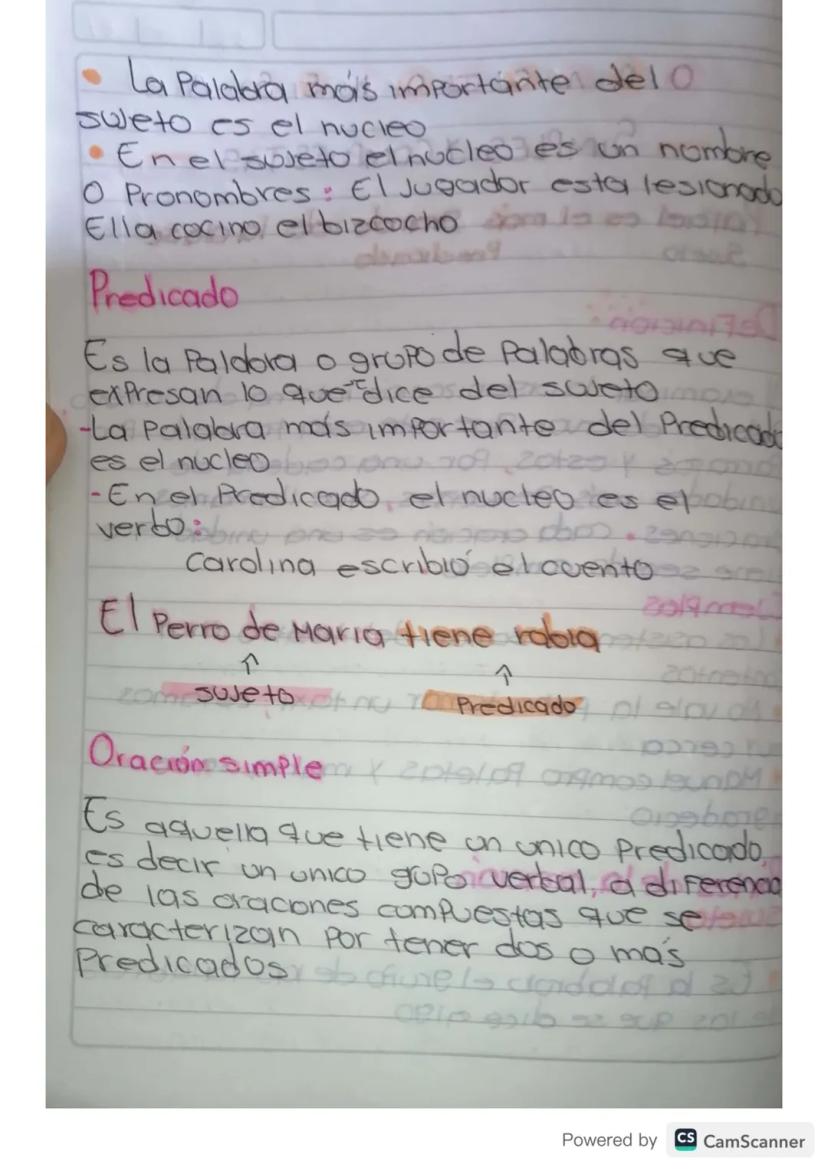 • La Palabra más importante del O
sujeto es el nucleo
• En el sujeto el nucleo es un nombre
O Pronombres: El Jugador esta lesionado
Ella cocino el bizcocho
Predicado
Es la Palabra o grupo de Palabras que
expresan lo que dice del sujeto
-La palabra más importante del Predicado
es el nucleo
-En el Predicado el nucleo es el
verbo:
Carolina escribió el cuento
El Perro de Maria tiene rabia
sujeto
Predicado
Oración simple
Es aquella que tiene un unico Predicado
es decir un unico gupo verbal, a diferencia
de las oraciones compuestas que se
caracterizan Por tener dos o más
Predicados
Powered by CS CamScanner